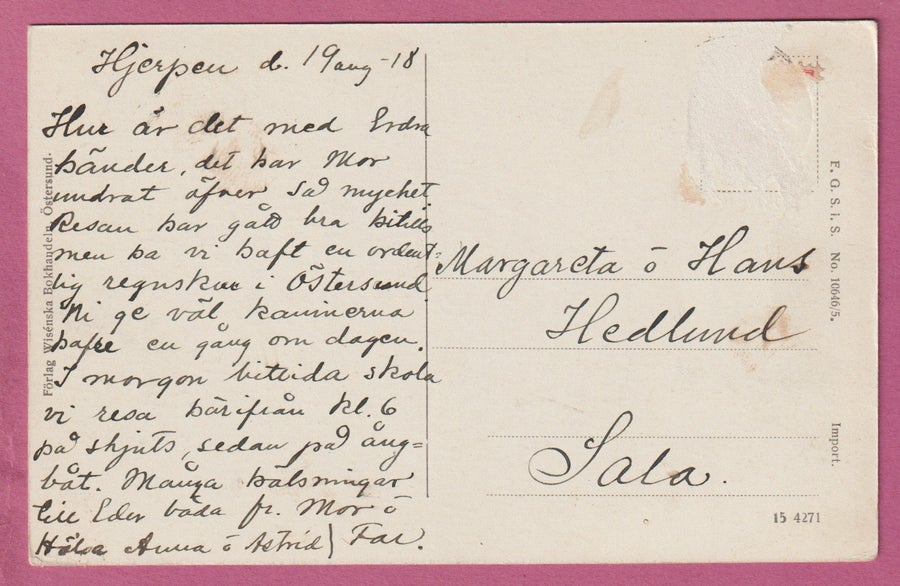 Hjerpen d. 19 aug -18
Hur är det med Edra
händer, det har Mor
undrat öfver så mycket.
Resan har gått bra hitills
men ha vi haft en ordent-
lig regnskur i Östersund
Ni ge väl kaninerna
hafre en gång om dagen.
I morgon bittida skola
vi resa härifrån kl. 6
på skjuts, sedan på ång=
båt. Många hälsningar
till Eder båda fr. Mor o
Hälsa Anna o Astrid) Far.
Margareta o Hans
Hedlund
Sala.
Förlag Wisénska Bokhandeln, Östersund.
F. G. S. i. S. No. 10646/5.
Import.
15 4271